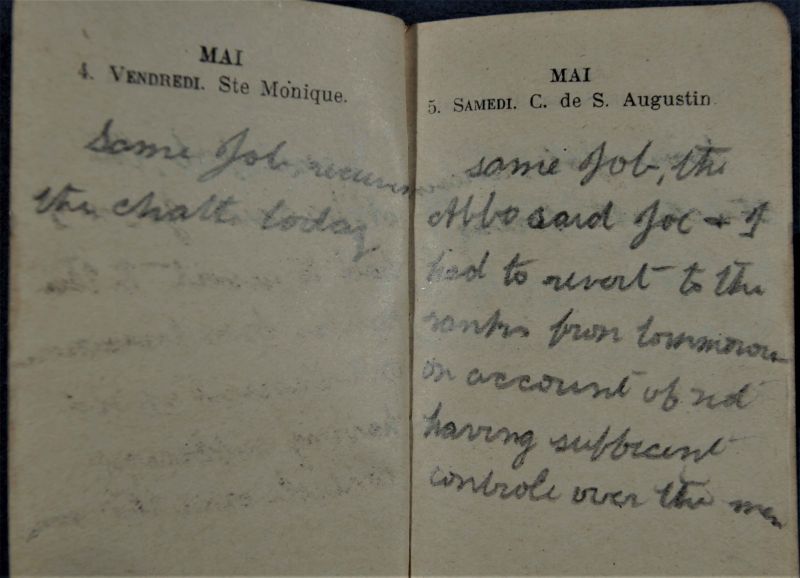 MAI
4. VENDREDI. Ste Monique.
Same Job,
the chatt today
MAI
5. SAMEDI. C. de S. Augustin.
same Job, the
said Joe + I
had to revert to the
ranks from tommorow
on account of not
having sufficent
controle over the men